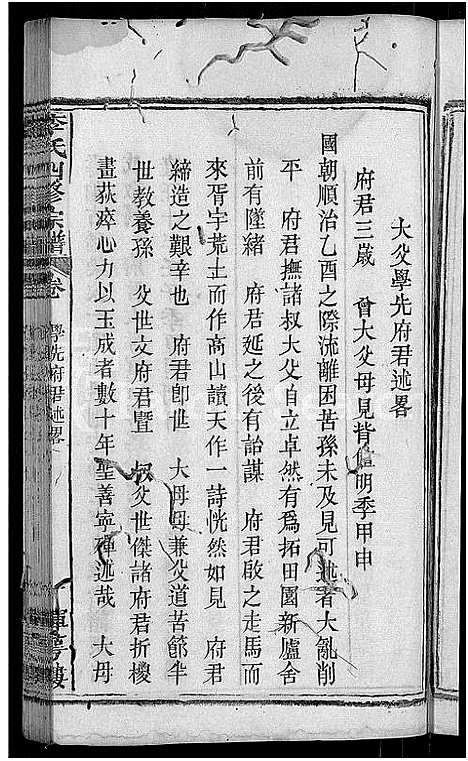 大父學先府君述畧
府君三歲　曾大父母見背值明季甲申
國朝順治乙酉之際流離困苦孫未及見可述者大亂削
平　府君撫諸叔大父自立卓然有爲拓田園新廬舍
前有墜緒　府君延之後有詒謀　府君啟之走馬而
來胥宇荒土而作高山讀天作一詩恍然如見　府君
締造之艱辛也　府君卽世　大母母兼父道苦節半
世教養孫　父世文府君暨　叔父世傑諸府君折㮨
畫荻瘁心力以玉成者數十年聖善寧殫述哉　大母
李氏四修宗譜　卷　學先府君述畧　一